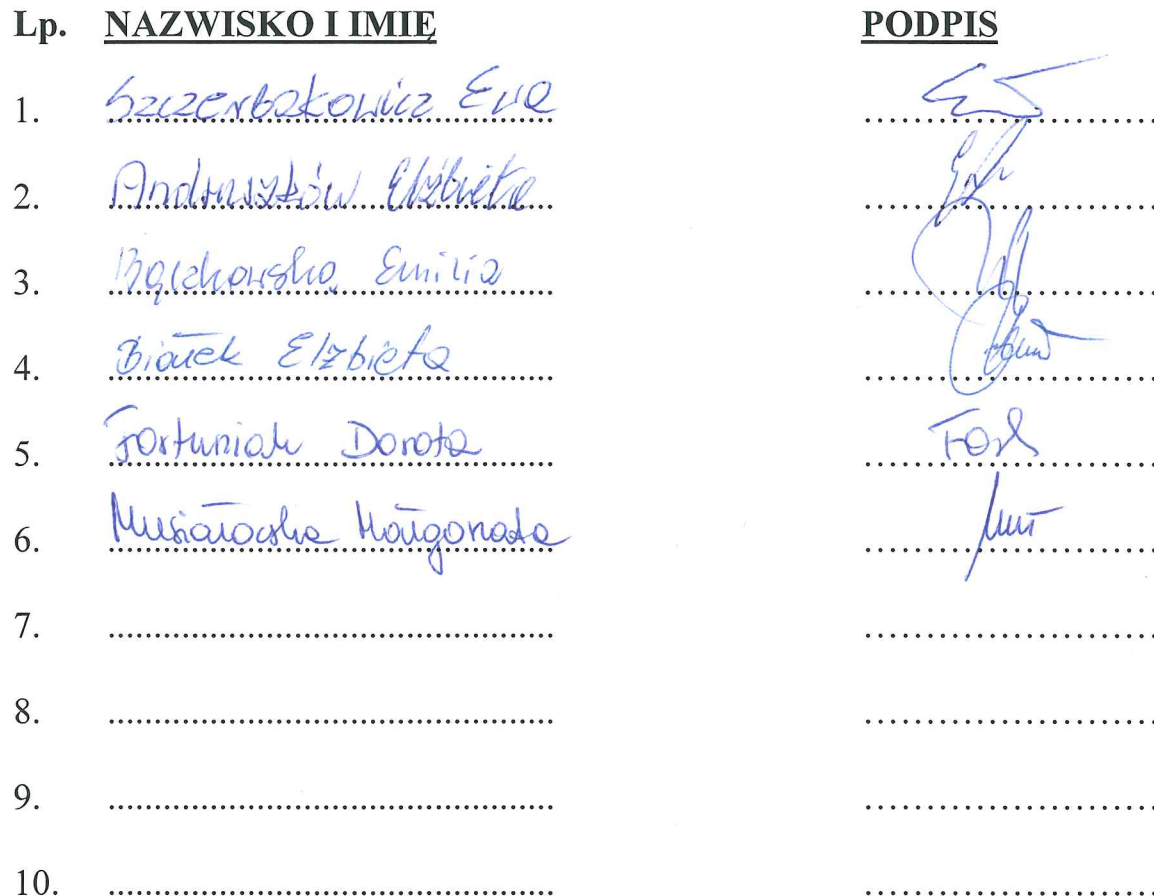 Lp. NAZWISKO I IMIĘ PODPIS
1. Szczerbakowicz Ewa
2. Andruszków Elżbieta
3. Bączkowska Emilia
4. Białek Elżbieta
5. Fortuniak Dorota
6. Musiałowska Małgorzata
7.
8.
9.
10.